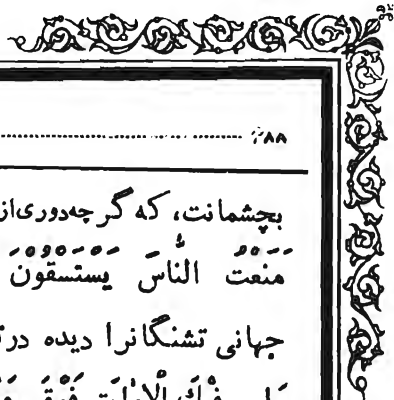 بچشمانت، که گر چه‌دوری‌از
مَنَعْتُ النّاسَ يَسْتَسْقُونَ
جهانی تشنگانرا دیده